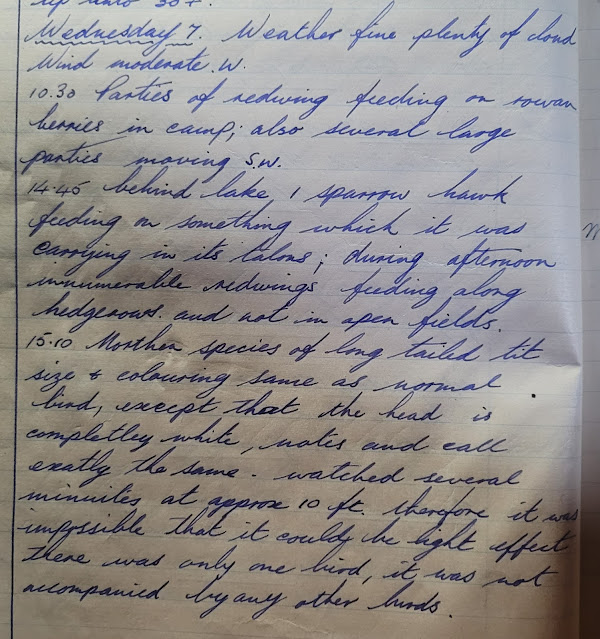 up unto 30+.
Wednesday 7. Weather fine plenty of cloud
Wind moderate. W.
10.30 Parties of redwing feeding on rowan
berries in camp; also several large
parties moving S.W.
14.45 behind lake 1 sparrow hawk
feeding on something which it was
carrying in its talons; during afternoon
innumerable redwings feeding along
hedgerows. and not in open fields.
15.10 Northern species of long tailed tit
size & colouring same as normal
bird, except that the head is
completley white, notes and call
exatly the same. watched several
minuites at approx 10 ft. therefore it was
impossible that it could be light effect
there was only one bird, it was not
accompanied by any other birds.